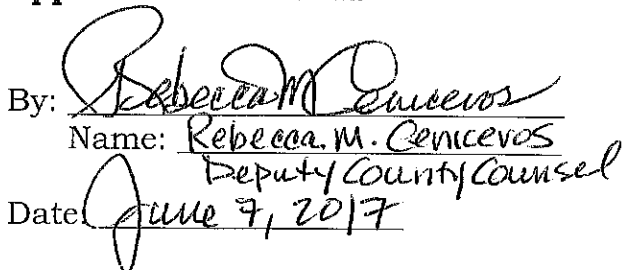 By: Rebecca M Ceniceros
Name: Rebecca. M. Ceniceros
Deputy County Counsel
Date: June 7, 2017